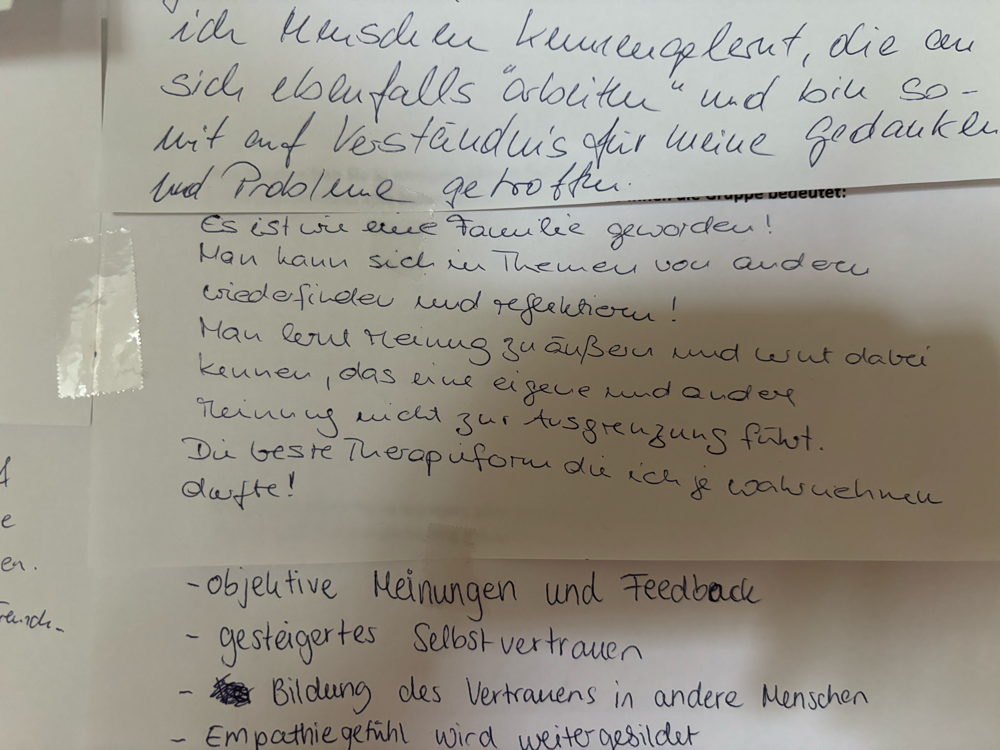 ich Menschen kennengelernt, die an
sich ebenfalls "arbeiten" und bin so-
mit auf Verständnis für meine Gedanken
und Probleme getroffen.
die Gruppe bedeutet:
Es ist wie eine Familie geworden!
Man kann sich in Themen von andern
wiederfinden und reflektieren!
Man lernt Meinung zu äußern und lernt dabei
kennen, das eine eigene und andere
Meinung nicht zur Ausgrenzung führt.
Die beste Therapieform die ich je wahrnehmen
durfte!
- objektive Meinungen und Feedback
- gesteigertes Selbstvertrauen
- Bildung des Vertrauens in andere Menschen
- Empathiegefühl wird weitergebildet